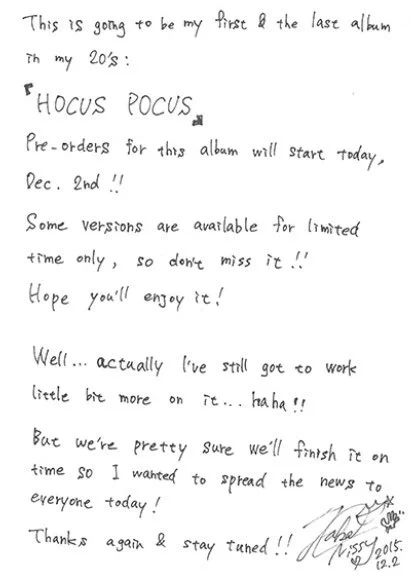 This is going to be my first & the last album
in my 20's:
『HOCUS POCUS』
Pre-orders for this album will start today,
Dec. 2nd !!
Some versions are available for limited
time only, so don't miss it !!
Hope you'll enjoy it!
Well... actually I've still got to work
little bit more on it... haha !!
But we're pretty sure we'll finish it on
time so I wanted to spread the news to
everyone today!
Thanks again & stay tuned !!
Nissy 2015.
12.2